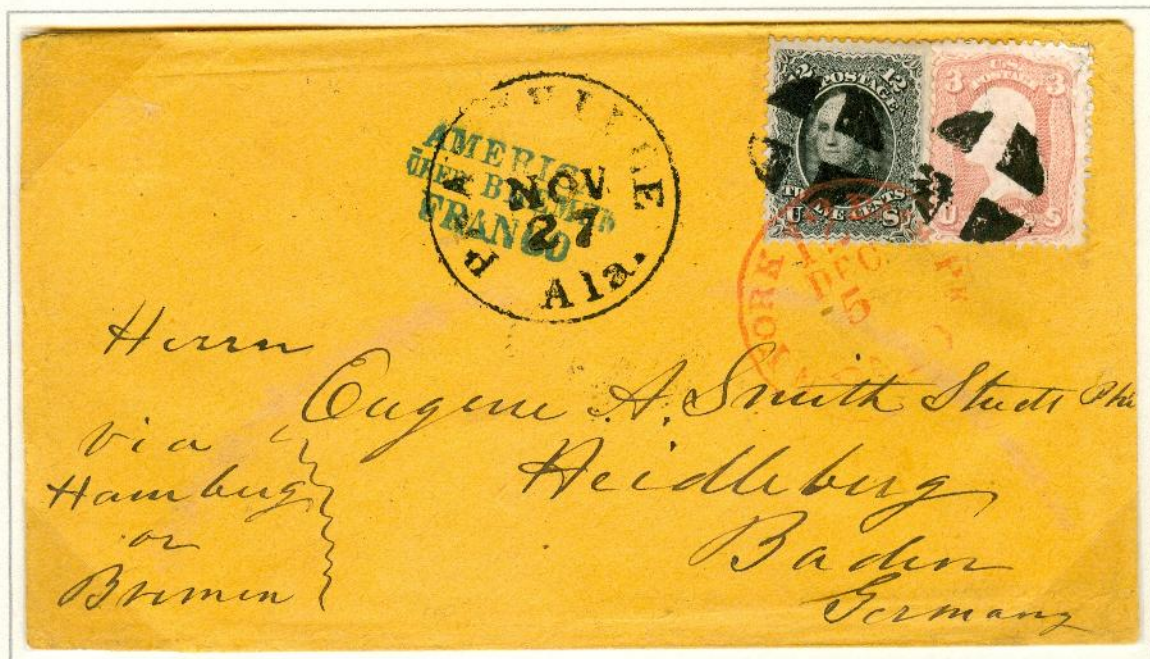 12 POSTAGE 12
TWELVE CENTS
U S
3 U.S. 3
POSTAGE
U S
NOV
27
Ala.
AMERICA
ÜBER BREMEN
FRANCO
YORK
DEC
5
Herrn
Eugene A. Smith Studt Phil
Heidleberg
Baden
Germany
via
Hamburg
or
Bremen